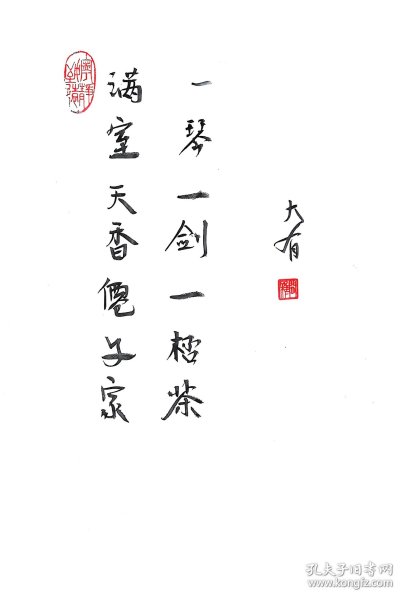 满室天香僊子家
一琴一剑一桮茶
大有
孔夫子旧书网
kongfz.com